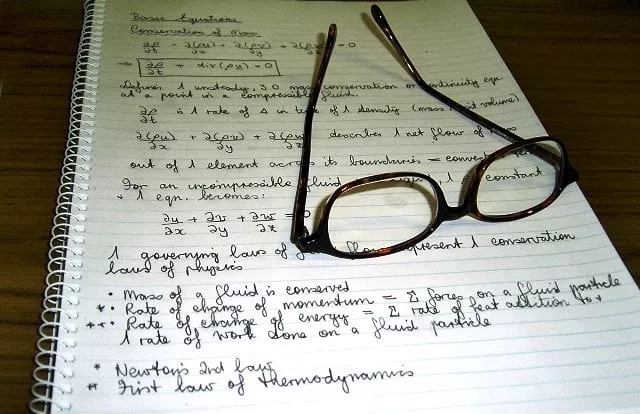 Basic Equations
Conservation of Mass
∂ρ/∂t + ∂(ρu)/∂x + ∂(ρv)/∂y + ∂(ρw)/∂z = 0
⇒ ∂ρ/∂t + div(ρu) = 0
Defines 1 unsteady, 3D mass conservation or continuity eqn.
at a point in a compressible fluid.
∂ρ/∂t is 1 rate of Δ in time of 1 density (mass volume)
∂(ρu)/∂x + ∂(ρv)/∂y + ∂(ρw) describes 1 net flow of
out of 1 element across its boundaries =
For an incompressible fluid 1 constant
+ 1 eqn. becomes:
∂u/∂x + ∂v/∂y + ∂w/∂z = 0
1 governing laws of flow represent 1 conservation
laws of physics
• Mass of a fluid is conserved
*• Rate of change of momentum = Σ forces on a fluid particle
**• Rate of change of energy = Σ rate of heat addition to +
1 rate of work done on a fluid particle
* Newtons 2nd law
** First law of thermodynamics